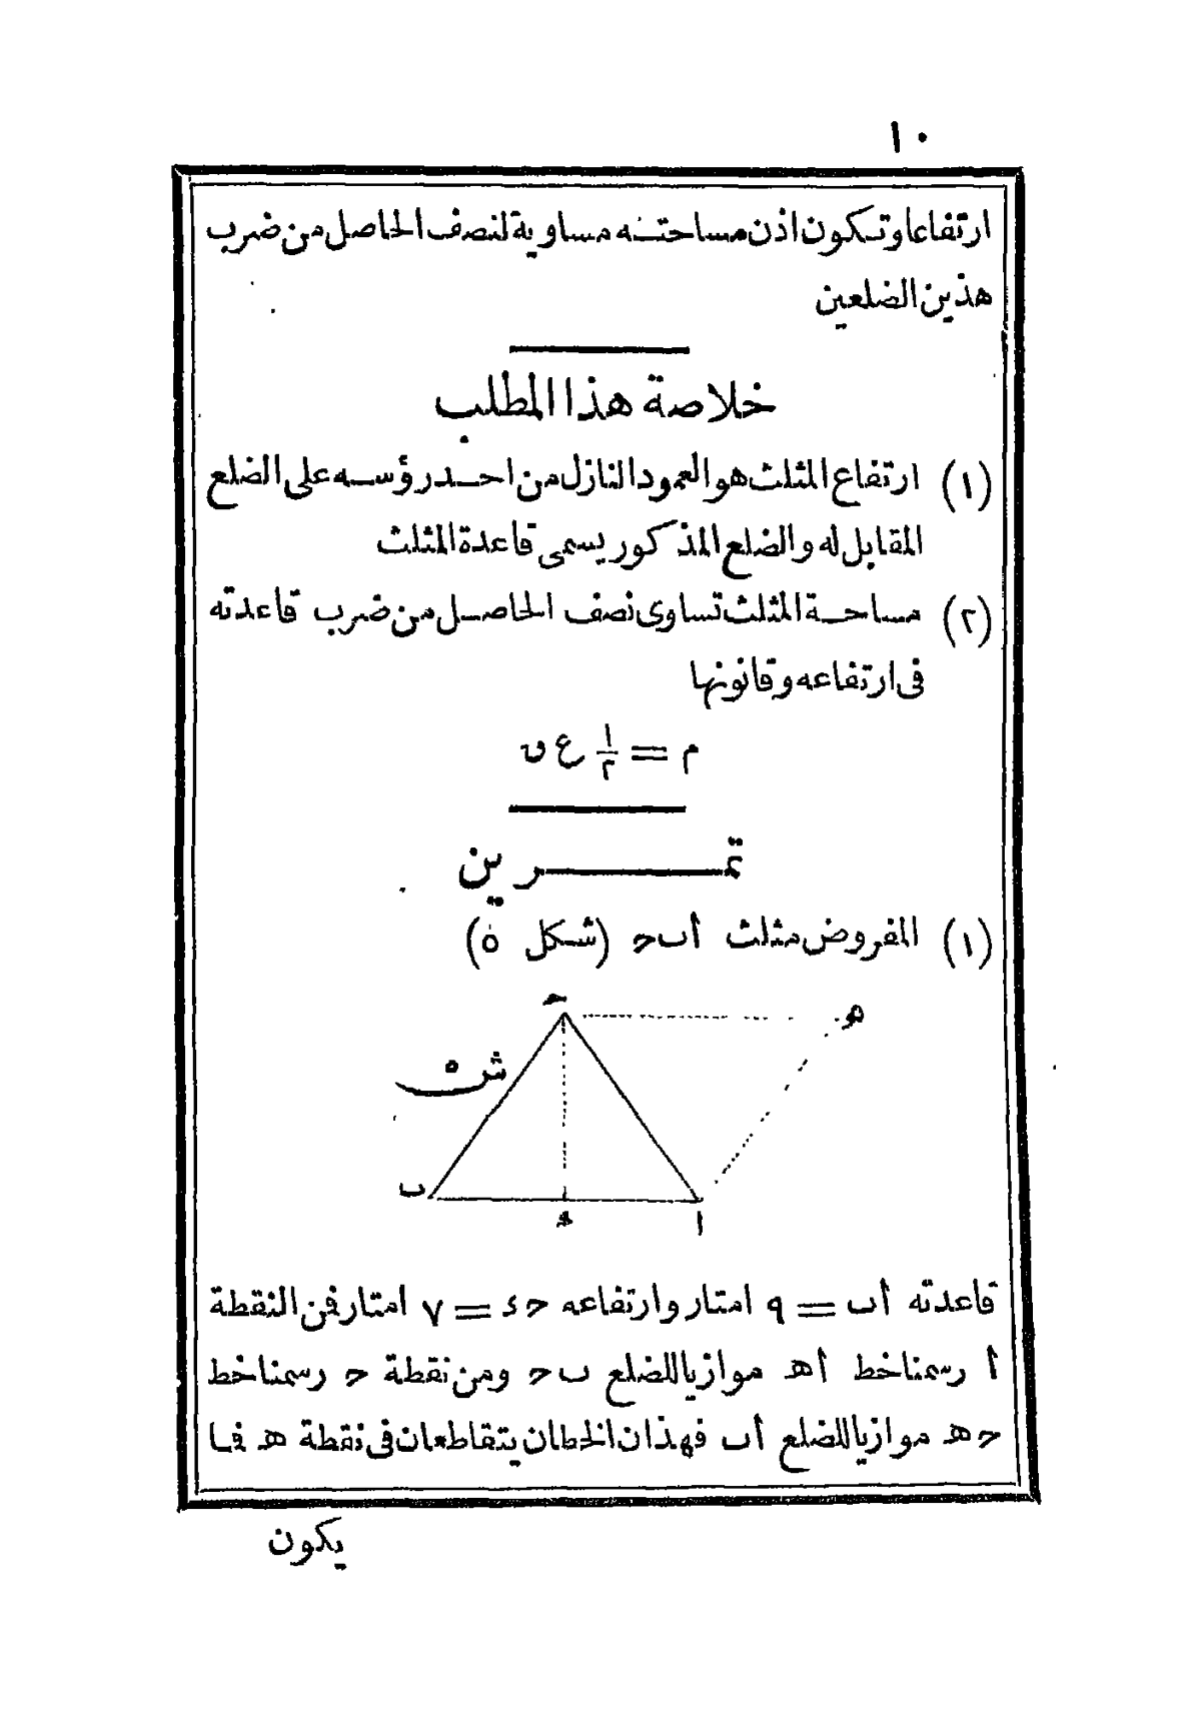 ١٠
ارتفاعا وتكون اذن مساحته مساوية لنصف الحاصل من ضرب
هذين الضلعين
خلاصة هذا المطلب
(١) ارتفاع المثلث هو العمود النازل من احد رؤسه على الضلع
المقابل له والضلع المذكور يسمى قاعدة المثلث
(٢) مساحة المثلث تساوى نصف الحاصل من ضرب قاعدته
فى ارتفاعه وقانونها
م = ١/٢ ع ق
تمرين
(١) المفروض مثلث أ ب ح (شكل ٥)
ح
هـ
ش ٥
ب
ء
ا
قاعدته أ ب = ٩ امتار وارتفاعه ح ء = ٧ امتار فمن النقطة
أ رسمنا خط أ هـ موازيا للضلع ب ح ومن نقطة ح رسمنا خط
ح هـ موازيا للضلع أ ب فهذان الخطان يتقاطعان فى نقطة هـ فما
يكون